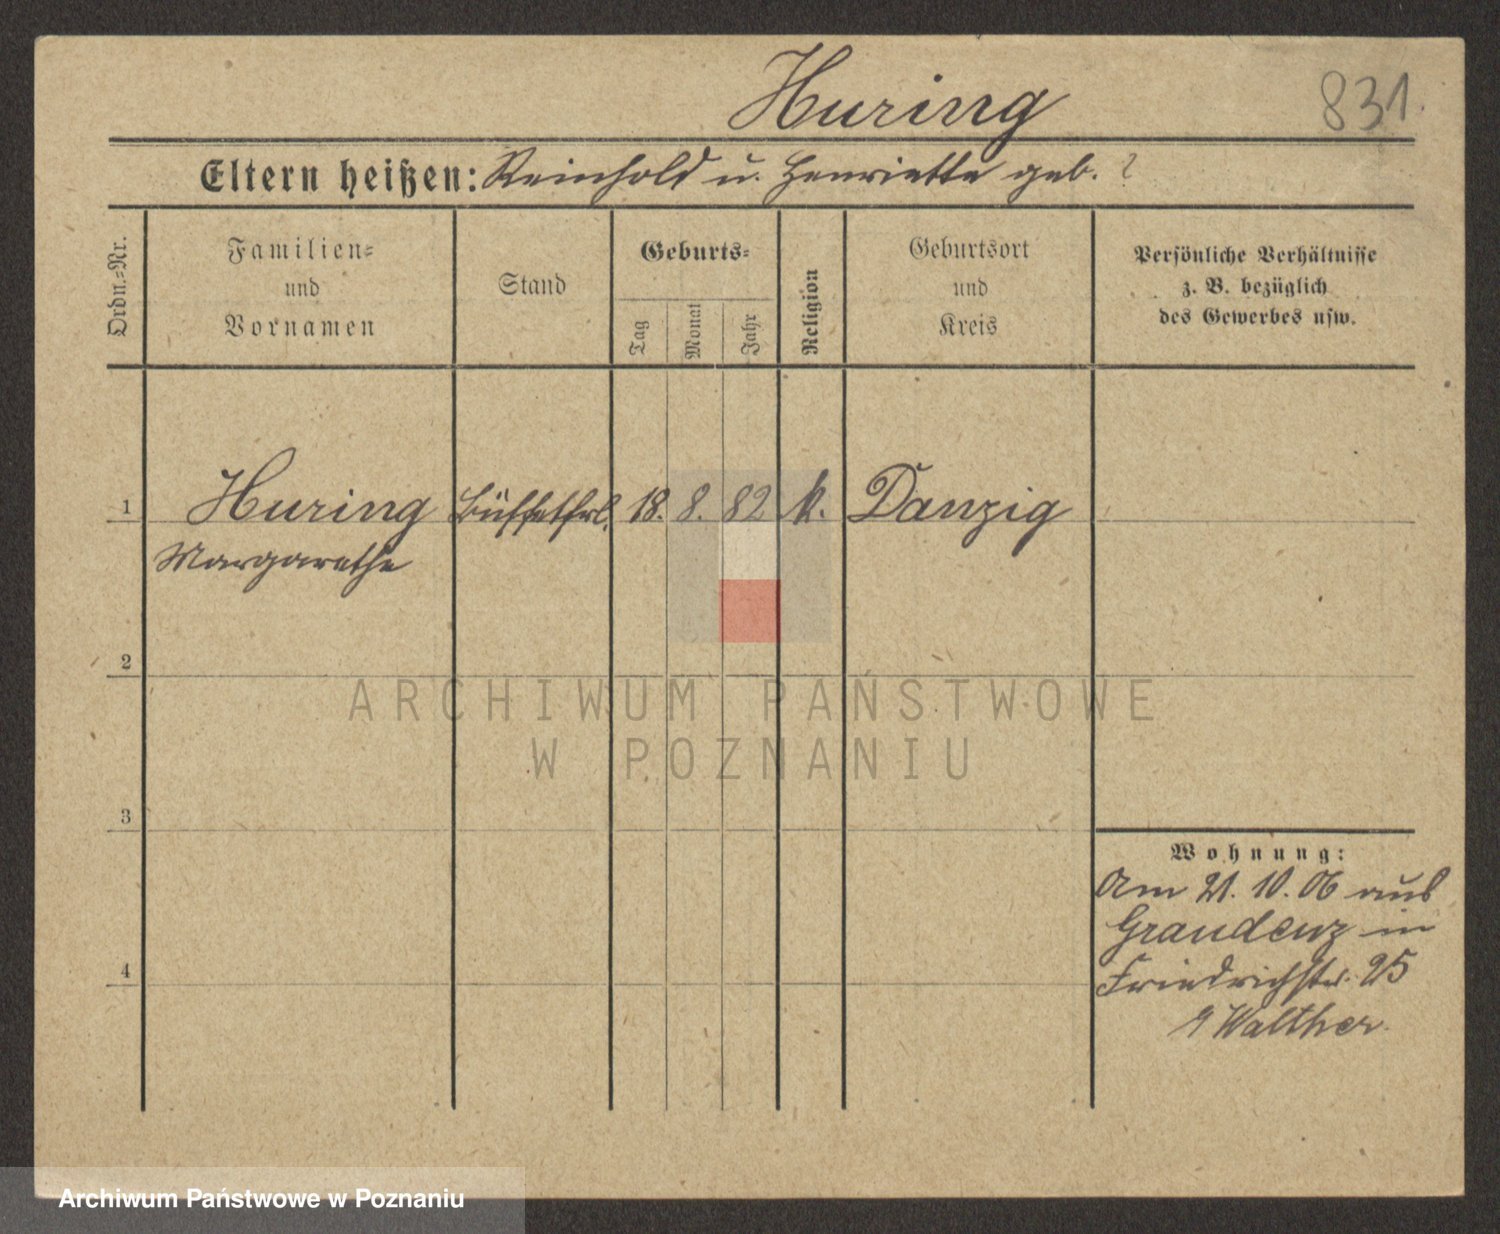 Huring
831.
Eltern heißen: Reinhold u. Henriette geb. ?
Ordn.-Nr.
Familien-
und
Vornamen
Stand
Geburts-
Tag
Monat
Jahr
Religion
Geburtsort
und
Kreis
Persönliche Verhältnisse
z. B. bezüglich
des Gewerbes usw.
1 Huring Büffetfrl. 18. 8. 82 k. Danzig
Margarethe
2
ARCHIWUM PAŃSTWOWE
W POZNANIU
3
Wohnung:
Am 21. 10. 06 aus
Graudenz in
4
Friedrichstr. 25
Walther
Archiwum Państwowe w Poznaniu